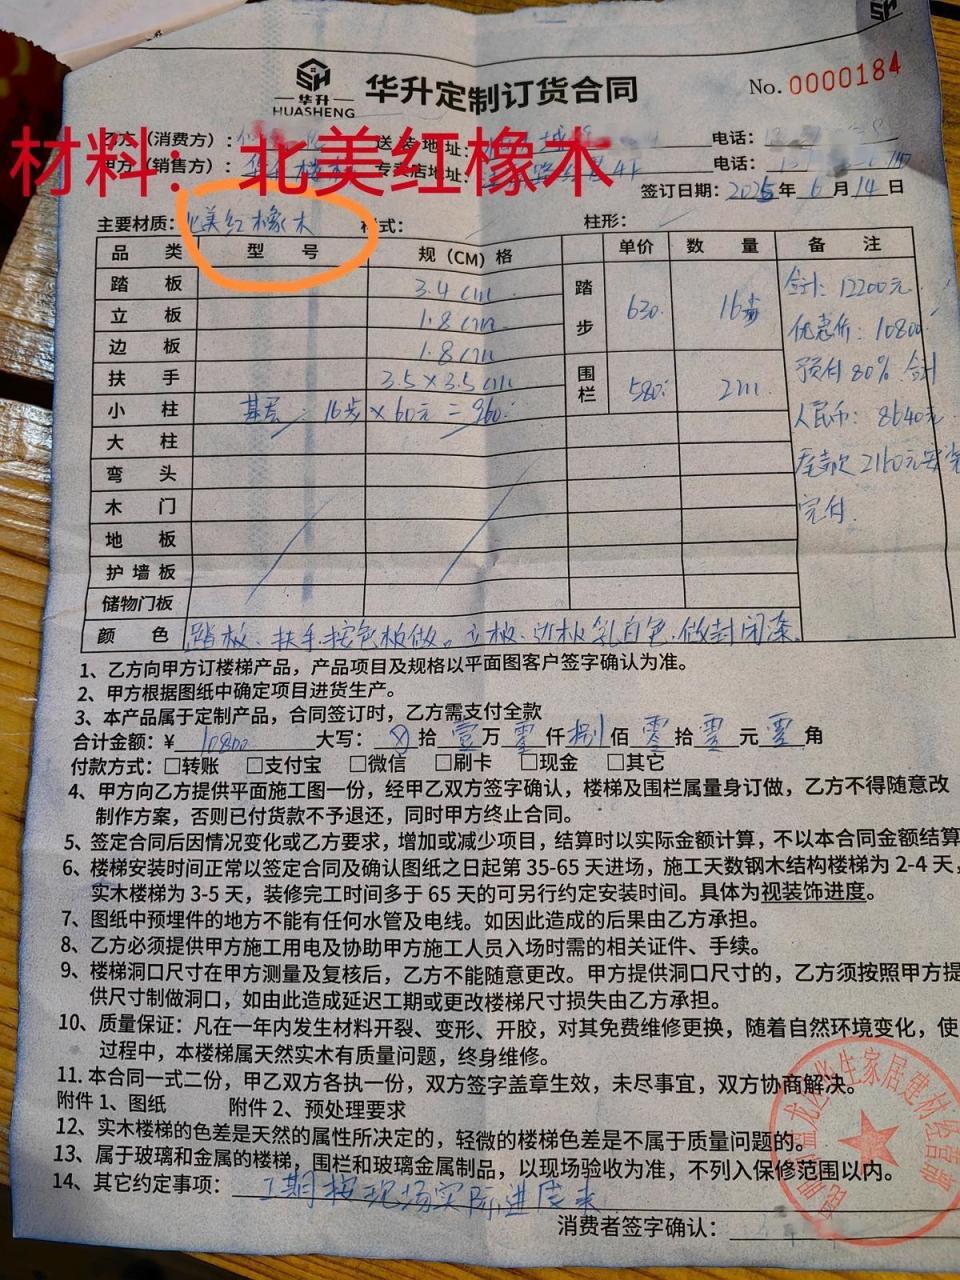 SH
SH
华升
HUASHENG
华升定制订货合同
No. 0000184
乙方（消费方）： 送装地址： 电话：
材料：北美红橡木
甲方（销售方）： 专卖店地址： 电话：
签订日期：2025年6月14日
主要材质：北美红橡木 样式： 柱形：
品类 型号 规（CM）格 单价 数量 备注
踏板 3.4cm 踏步 630 16步 合计：12200元
立板 1.8cm 优惠价：10800
边板 1.8cm 预付80% 合计
扶手 3.5×3.5cm 围栏 580 2m 人民币：8640元
小柱 基层：16步×60元=960
大柱 尾款2160元安装
弯头 完付
木门
地板
护墙板
储物门板
颜色 踏板、扶手按色板做。立板、边板乳白色，做封闭漆。
1、乙方向甲方订楼梯产品，产品项目及规格以平面图客户签字确认为准。
2、甲方根据图纸中确定项目进货生产。
3、本产品属于定制产品，合同签订时，乙方需支付全款
合计金额：¥ 10800 大写：⊗拾壹万零仟捌佰零拾零元零角
付款方式：□转账 □支付宝 □微信 □刷卡 □现金 □其它
4、甲方向乙方提供平面施工图一份，经甲乙双方签字确认，楼梯及围栏属量身订做，乙方不得随意改
制作方案，否则已付货款不予退还，同时甲方终止合同。
5、签定合同后因情况变化或乙方要求，增加或减少项目，结算时以实际金额计算，不以本合同金额结算
6、楼梯安装时间正常以签定合同及确认图纸之日起第35-65天进场，施工天数钢木结构楼梯为2-4天，
实木楼梯为3-5天，装修完工时间多于65天的可另行约定安装时间。具体为视装饰进度。
7、图纸中预埋件的地方不能有任何水管及电线。如因此造成的后果由乙方承担。
8、乙方必须提供甲方施工用电及协助甲方施工人员入场时需的相关证件、手续。
9、楼梯洞口尺寸在甲方测量及复核后，乙方不能随意更改。甲方提供洞口尺寸的，乙方须按照甲方提
供尺寸制做洞口，如由此造成延迟工期或更改楼梯尺寸损失由乙方承担。
10、质量保证：凡在一年内发生材料开裂、变形、开胶，对其免费维修更换，随着自然环境变化，使
过程中，本楼梯属天然实木有质量问题，终身维修。
11.本合同一式二份，甲乙双方各执一份，双方签字盖章生效，未尽事宜，双方协商解决。
附件1、图纸 附件2、预处理要求
12、实木楼梯的色差是天然的属性所决定的，轻微的楼梯色差是不属于质量问题的。
13、属于玻璃和金属的楼梯，围栏和玻璃金属制品，以现场验收为准，不列入保修范围以内。
14、其它约定事项：工期按现场实际进度来
消费者签字确认：